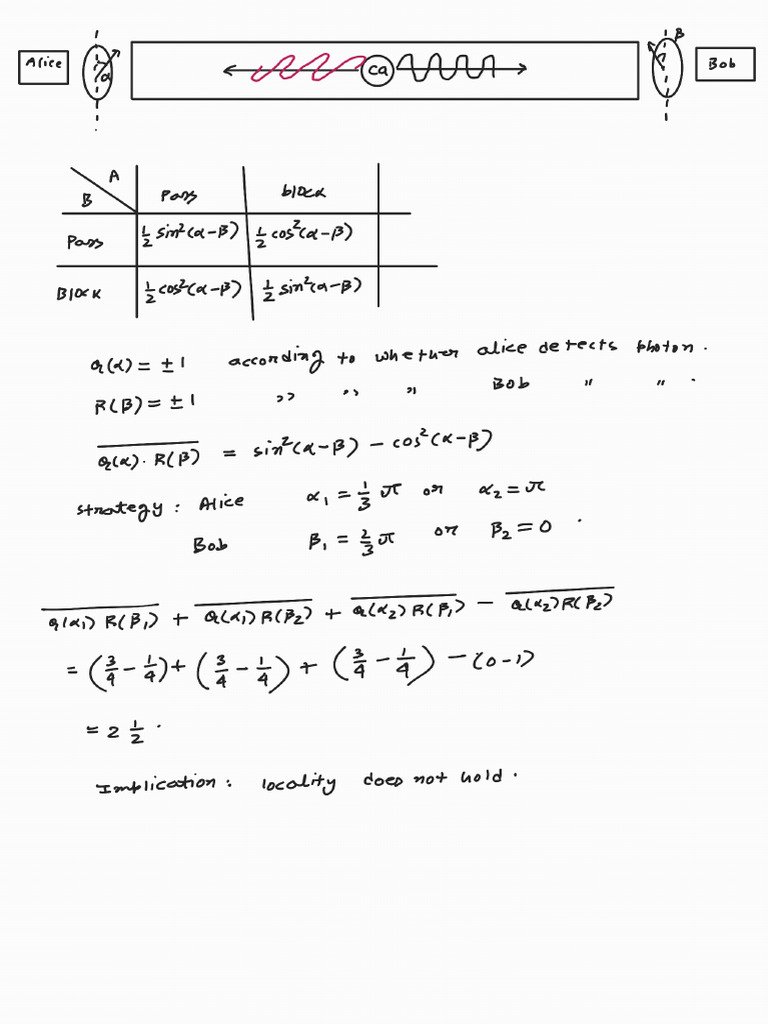 Alice α ca β Bob
A
B Pass block
Pass ½ sin²(α-β) ½ cos²(α-β)
Block ½ cos²(α-β) ½ sin²(α-β)
Q(α) = ±1 according to whether alice detects photon.
R(β) = ±1 ,, ,, ,, Bob " ".
Q(α)·R(β) = sin²(α-β) - cos²(α-β)
strategy: Alice α₁ = ⅓ π or α₂ = π
Bob β₁ = ⅔ π or β₂ = 0.
Q(α₁) R(β₁) + Q(α₁) R(β₂) + Q(α₂) R(β₁) - Q(α₂) R(β₂)
= (¾ - ¼) + (¾ - ¼) + (¾ - ¼) - (0-1)
= 2 ½.
Implication: locality does not hold.